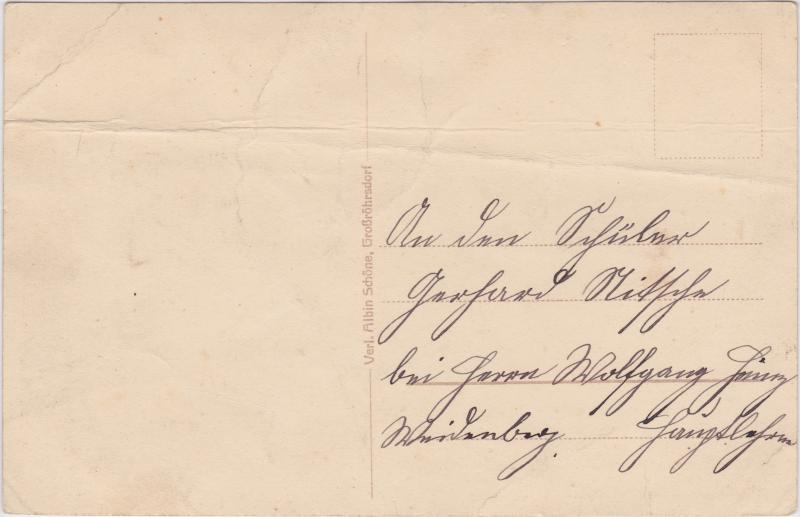 Verl. Albin Schöne, Großröhrsdorf
An den Schüler
Gerhard Nitsche
bei Herrn Wolfgang Heinz
Weidenberg Hauptlehrer